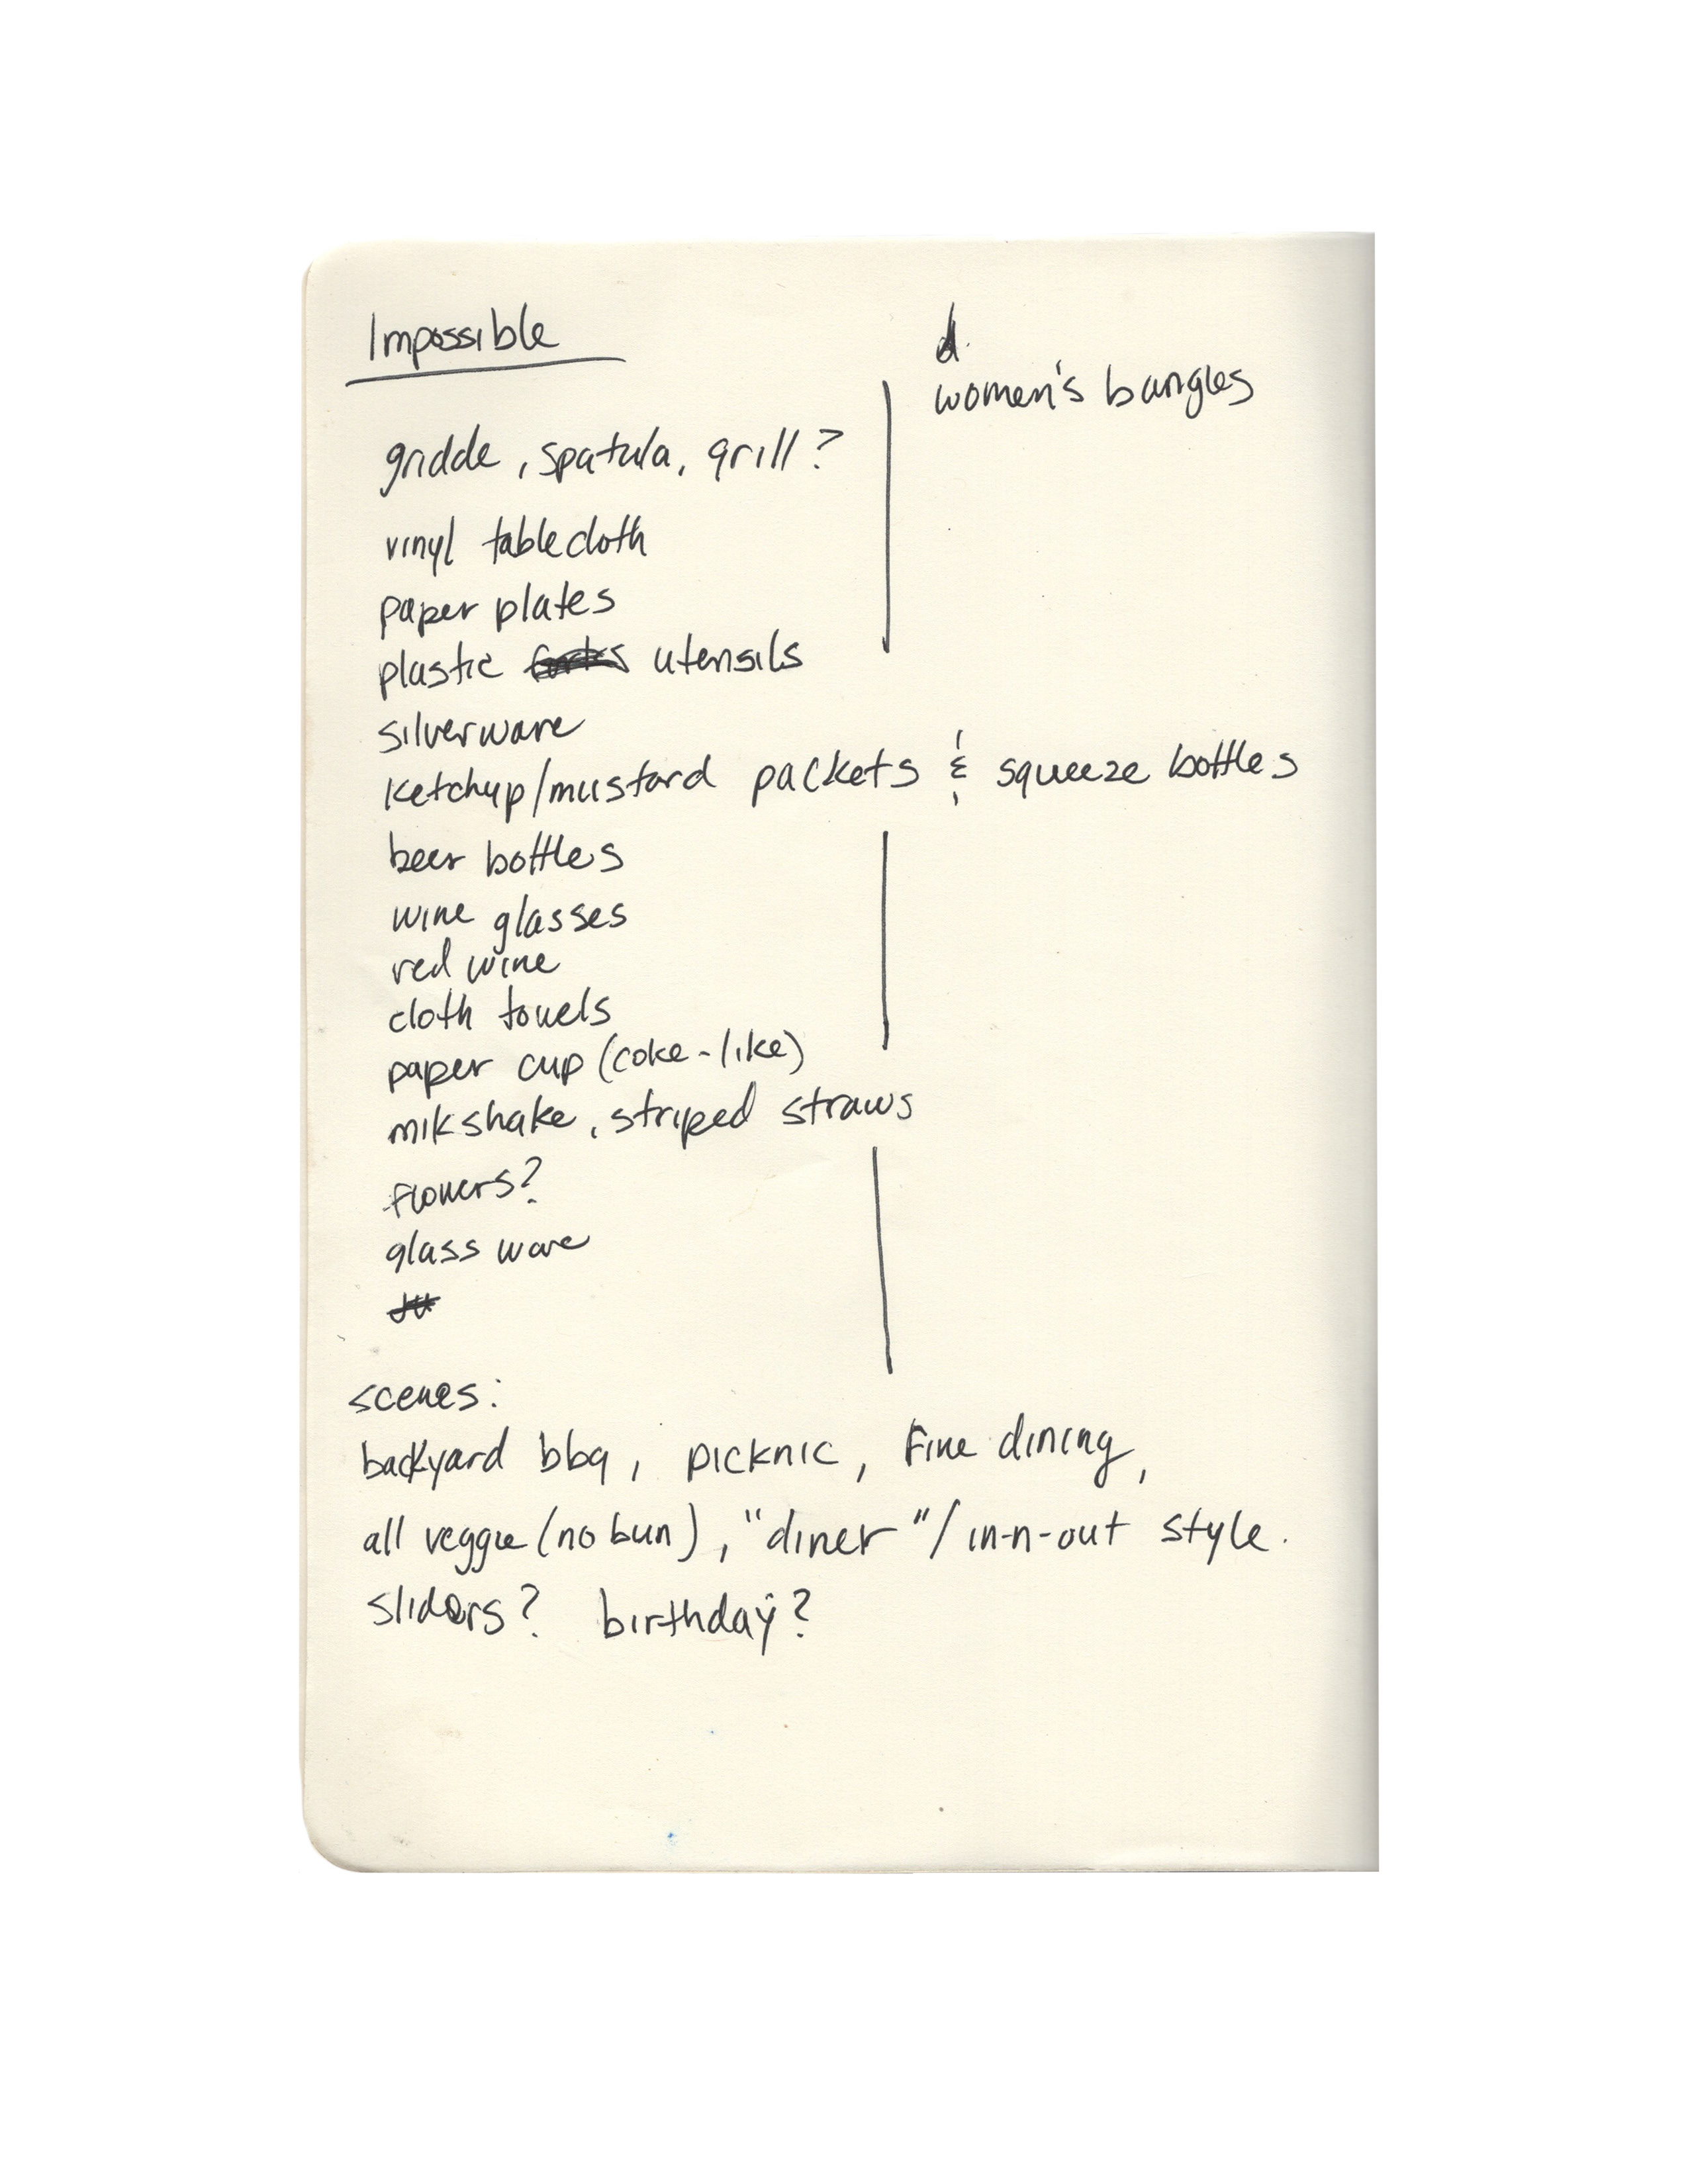 Impossible
d.
women's bangles
gridde, spatula, grill?
vinyl tablecloth
paper plates
plastic forks utensils
silverware
ketchup/mustard packets & squeeze bottles
beer bottles
wine glasses
red wine
cloth towels
paper cup (coke-like)
mikshake, striped straws
flowers?
glass ware
scenes:
backyard bbq, picknic, Fine dining,
all veggie (no bun), "diner"/in-n-out style.
sliders? birthday?